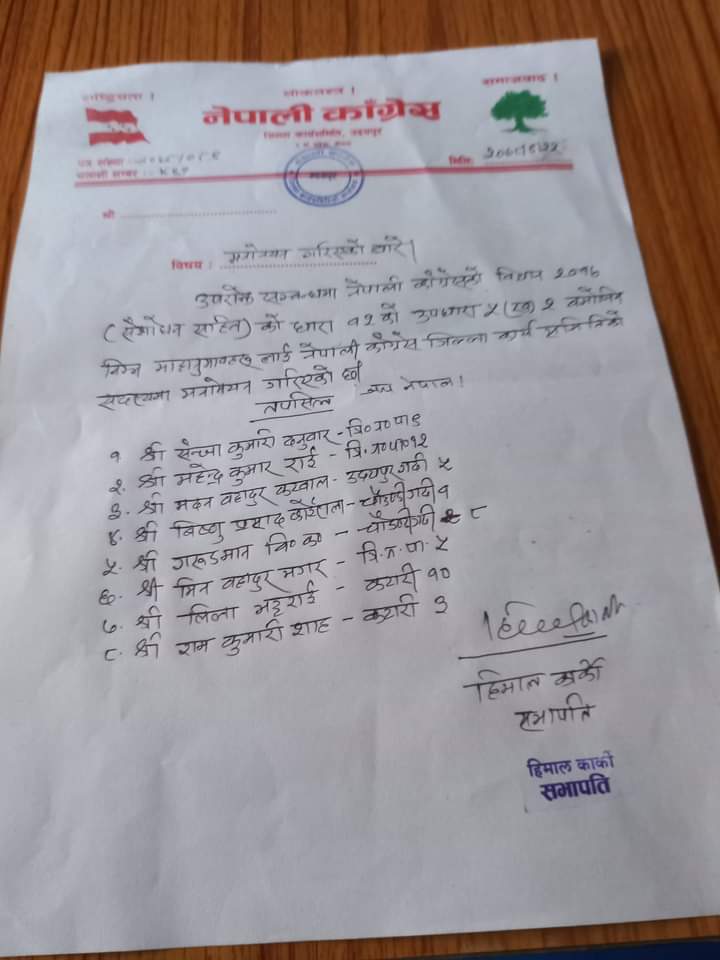 राष्ट्रियता ! लोकतन्त्र ! समाजवाद !
नेपाली काँग्रेस
जिल्ला कार्यसमिति, उदयपुर
पत्र संख्या :-
चलानी नम्बर :- मितिः
श्री
विषय : मनोनयन गरिएको बारे।
उपरोक्त सम्बन्धमा नेपाली काँग्रेसको विधान २०१७
(संशोधन सहित) को धारा १२ को उपधारा ५ (ख) २ बमोजिम
निम्न माहानुभावहरु लाई नेपाली काँग्रेस जिल्ला कार्य समितिको
सदस्यमा मनोनयन गरिएको छ। जय नेपाल।
तपसिल
१ श्री संन्जा कुमारी दनुवार - त्रि०न०पा ९
२. श्री महेन्द्र कुमार राई - त्रि.न०पा०१२
३. श्री मदन वहादुर करवाल - उदयपुर गढी ५
४. श्री बिष्णु प्रसाद कोईराला - चौदण्डीगढी १
५. श्री गरुडमान वि०क० - चौदण्डीगढी ८
६. श्री मिन वहादुर मगर - त्रि.न.पा. ५
७. श्री लिला भट्टराई - कटारी १०
८. श्री राम कुमारी शाह - कटारी ३
हिमाल कार्की
सभापति
हिमाल कार्की
सभापति